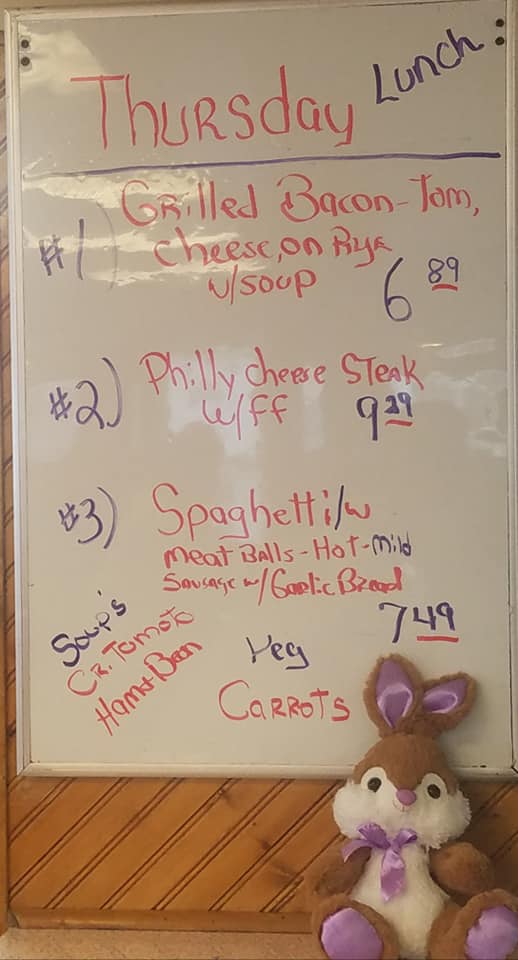 Thursday Lunch
#1) Grilled Bacon-Tom,
cheese, on Rye
w/soup 6 89
#2) Philly cheese Steak
w/FF 9 29
#3) Spaghetti/w
Meat Balls-Hot-Mild
Sausage w/Garlic Bread
7 49
Soup's
CR. Tomoto
Ham & Bean
Veg
Carrots